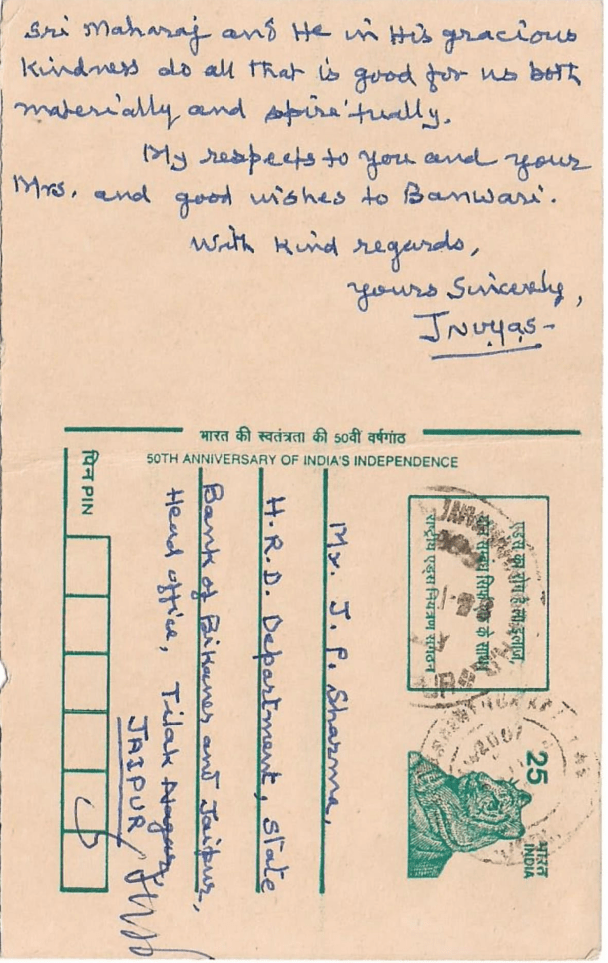 Sri Maharaj and He in His gracious
kindness do all that is good for us both
materially and spiritually.
My respects to you and your
Mrs. and good wishes to Banwari.
With kind regards,
yours Sincerely,
JNVyas-
भारत की स्वतंत्रता की 50वीं वर्षगांठ
50TH ANNIVERSARY OF INDIA'S INDEPENDENCE
एड्स का
राष्ट्रीय एड्स नियंत्रण संगठन
25
भारत
INDIA
Mr. J. P. Sharma,
H.R.D. Department, State
Bank of Bikaner and Jaipur,
Head office, Tilak
JAIPUR
पिन PIN